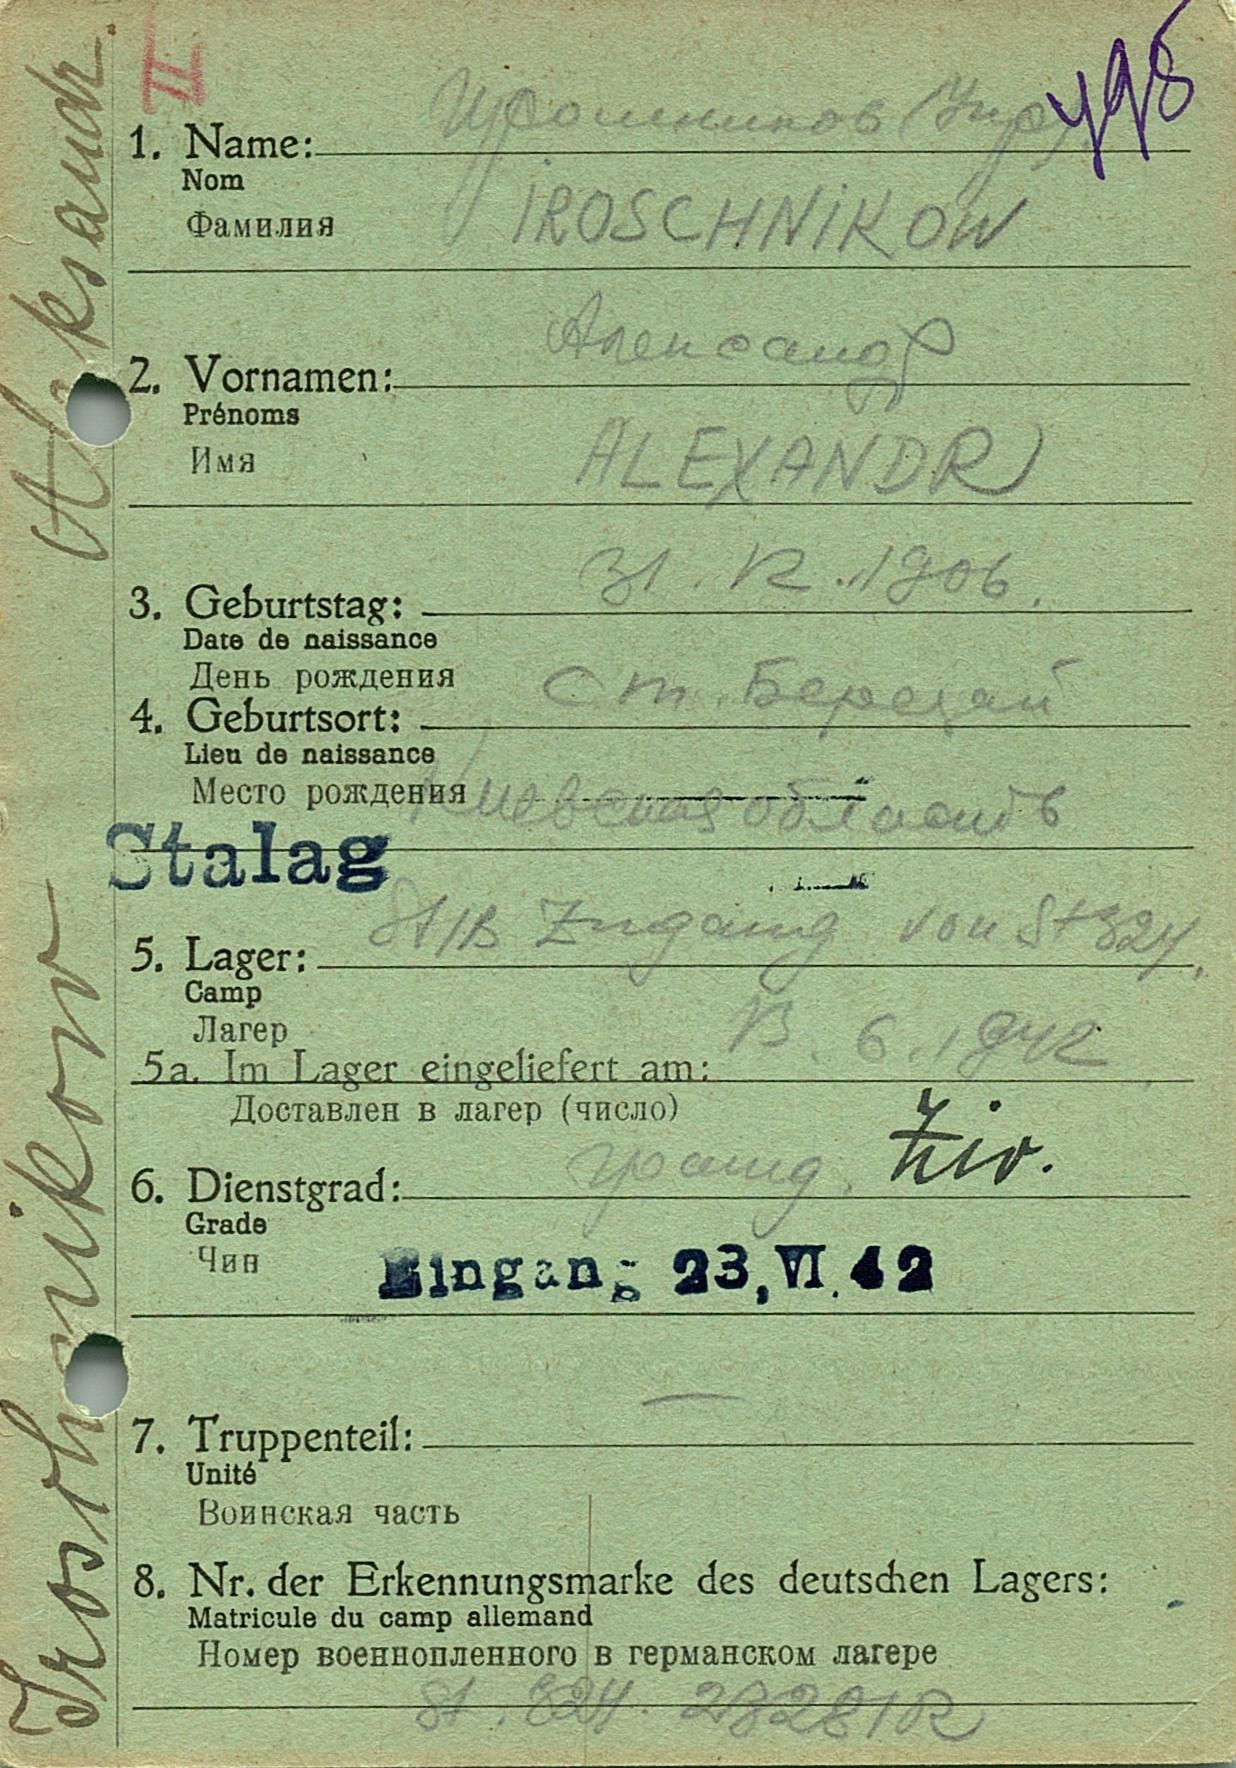 II
498
1. Name:
Nom
Фамилия
Ирошников (Укр)
IROSCHNIKOW
2. Vornamen:
Prénoms
Имя
Александр
ALEXANDR
3. Geburtstag: 31. 12. 1906.
Date de naissance
День рождения
4. Geburtsort: ст.
Lieu de naissance
Место рождения
Киевская область
Stalag
St/B Zugang von St 324.
5. Lager:
Camp
Лагерь
5a. Im Lager eingeliefert am: 6. 1942
Доставлен в лагер (число)
6. Dienstgrad: гражд. Ziv.
Grade
Чин
Eingang 23. VI. 42
7. Truppenteil: —
Unité
Воинская часть
8. Nr. der Erkennungsmarke des deutschen Lagers:
Matricule du camp allemand
Номер военнопленного в германском лагере
St. 324.
Iroschnikow Aleksandr.